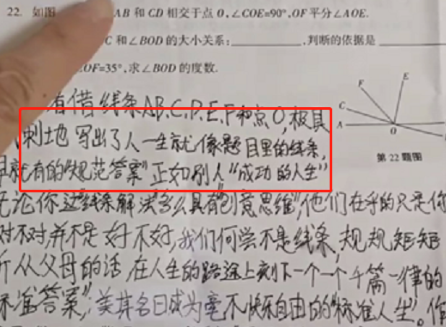 22. 如图 AB 和 CD 相交于点 O,∠COE=90°,OF 平分∠AOE.
C 和∠BOD 的大小关系: ,判断的依据是
OF=35°,求∠BOD 的度数.
E
F
C
A
O
第 22 题图
有借线条AB、C、D、E、F和点O,极其
刺地 写出了人一生就像题目里的线条,
早就有的"规范答案"正如别人"成功的人生"
无论你这"线条解法"多么具有"创意思维",他们在乎的只是你
对不对并不是好不好,我们何尝不是线条,规规矩矩
听从父母的话,在人生的路途上刻下一个个千篇一律的
标准答案",美其名曰成为毫不快乐自由的"标准人生"。